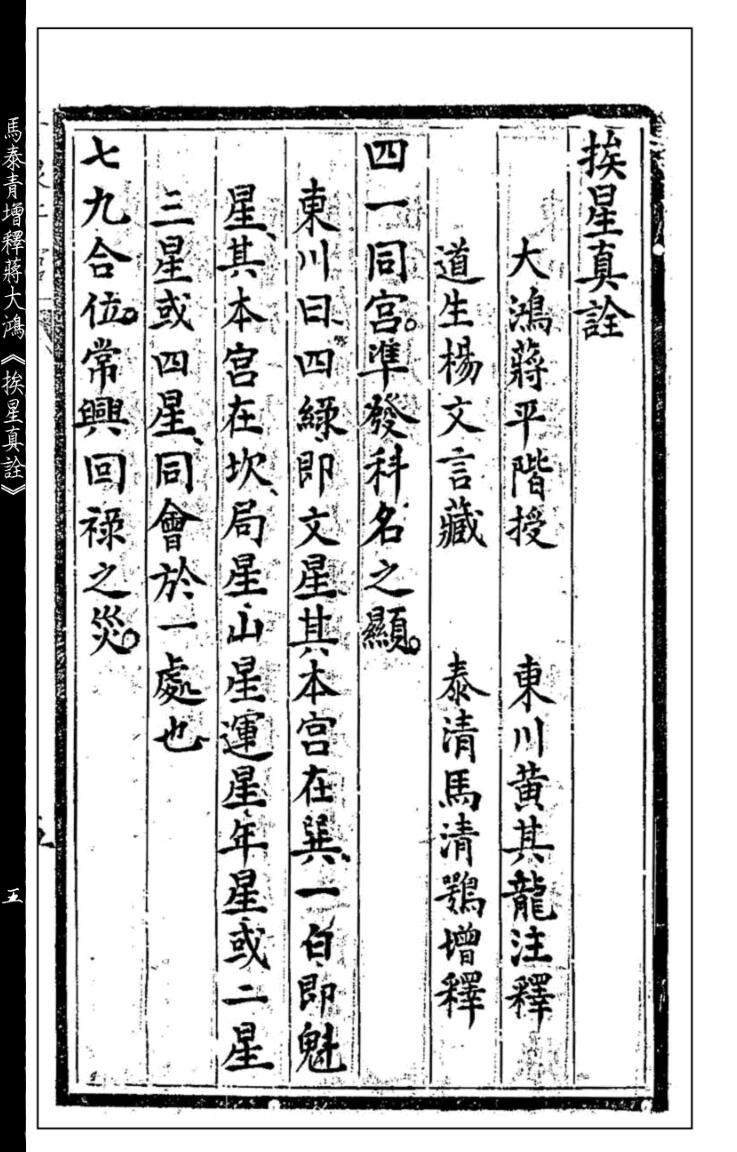 挨星真詮
大鴻蔣平階授 東川黄其龍注釋
道生楊文言藏 泰清馬清鶚增釋
四一同宫。準發科名之顯。
東川曰、四緑、即文星其本宫在巽、一白、即魁
星、其本宫在坎、局星、山星、運星、年星、或二星、
三星或四星、同會於一處也
七九合位。常興回祿之災。
馬泰青增釋蔣大鴻《挨星真詮》
五